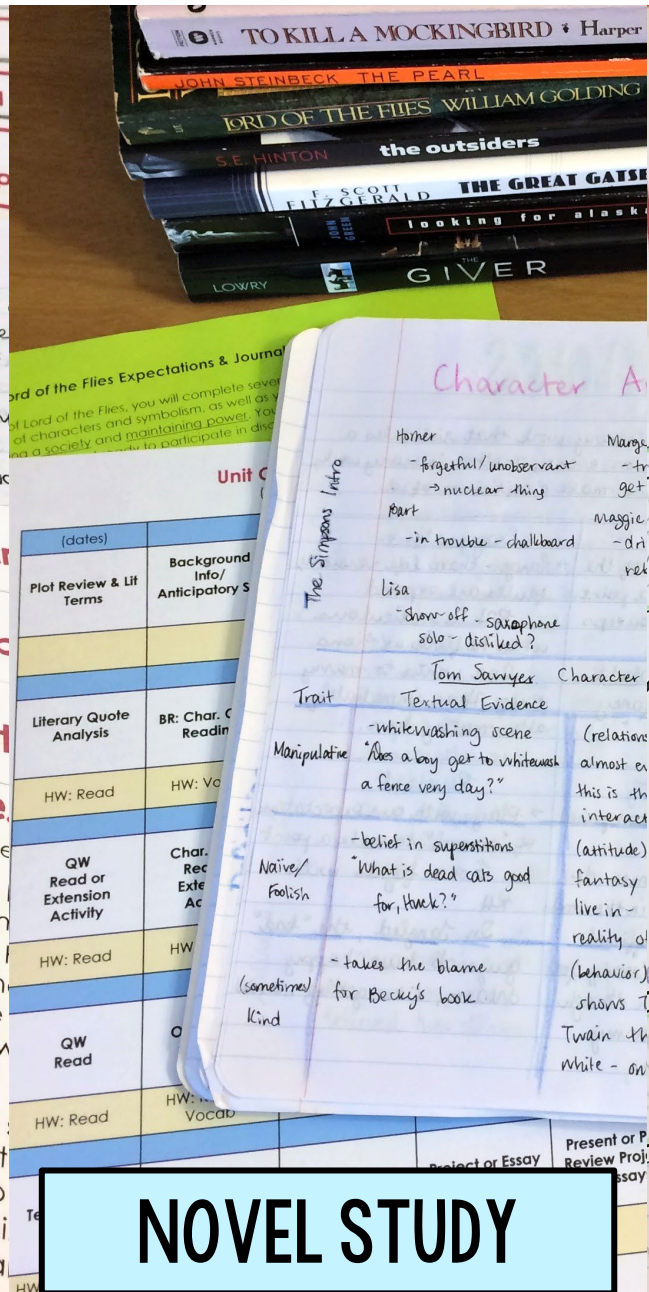 TO KILL A MOCKINGBIRD Harper
JOHN STEINBECK THE PEARL
LORD OF THE FLIES WILLIAM GOLDING
S.E. HINTON the outsiders
F. SCOTT FITZGERALD THE GREAT GATSB
JOHN GREEN looking for alaska
LOWRY THE GIVER
ord of the Flies Expectations & Journal
of Lord of the Flies, you will complete seve
of characters and symbolism, as well as
ng a society and maintaining power. You
ady to participate in disc
Unit C
(dates)
Plot Review & Lit
Terms
Background
Info/
Anticipatory S
Literary Quote
Analysis
BR: Char. C
Readin
HW: Read
HW: Vo
QW
Read or
Extension
Activity
Char.
Rec
Exte
Ac
HW: Read
HW
QW
Read
HW: Read
HW:
Vocab
Project or Essay
Present or P
Review Proj
ssay
Te
HW
Character A
The Simpsons Intro
Homer
-forgetful/unobservant
→ nuclear thing
Bart
-in trouble - chalkboard
Lisa
-show-off - saxophone
solo - disliked?
Marge
-tr
get
Maggie
-dri
ret
Tom Sawyer Character
Trait Textual Evidence
Manipulative
-whitewashing scene
"Does a boy get to whitewash
a fence very day?"
(relations
almost e
this is th
interact
Naïve/
Foolish
-belief in superstitions
"What is dead cats good
for, Huck?"
(attitude)
fantasy
live in -
reality o
(sometimes)
Kind
-takes the blame
for Becky's book
(behavior)
shows T
Twain th
white - on
NOVEL STUDY